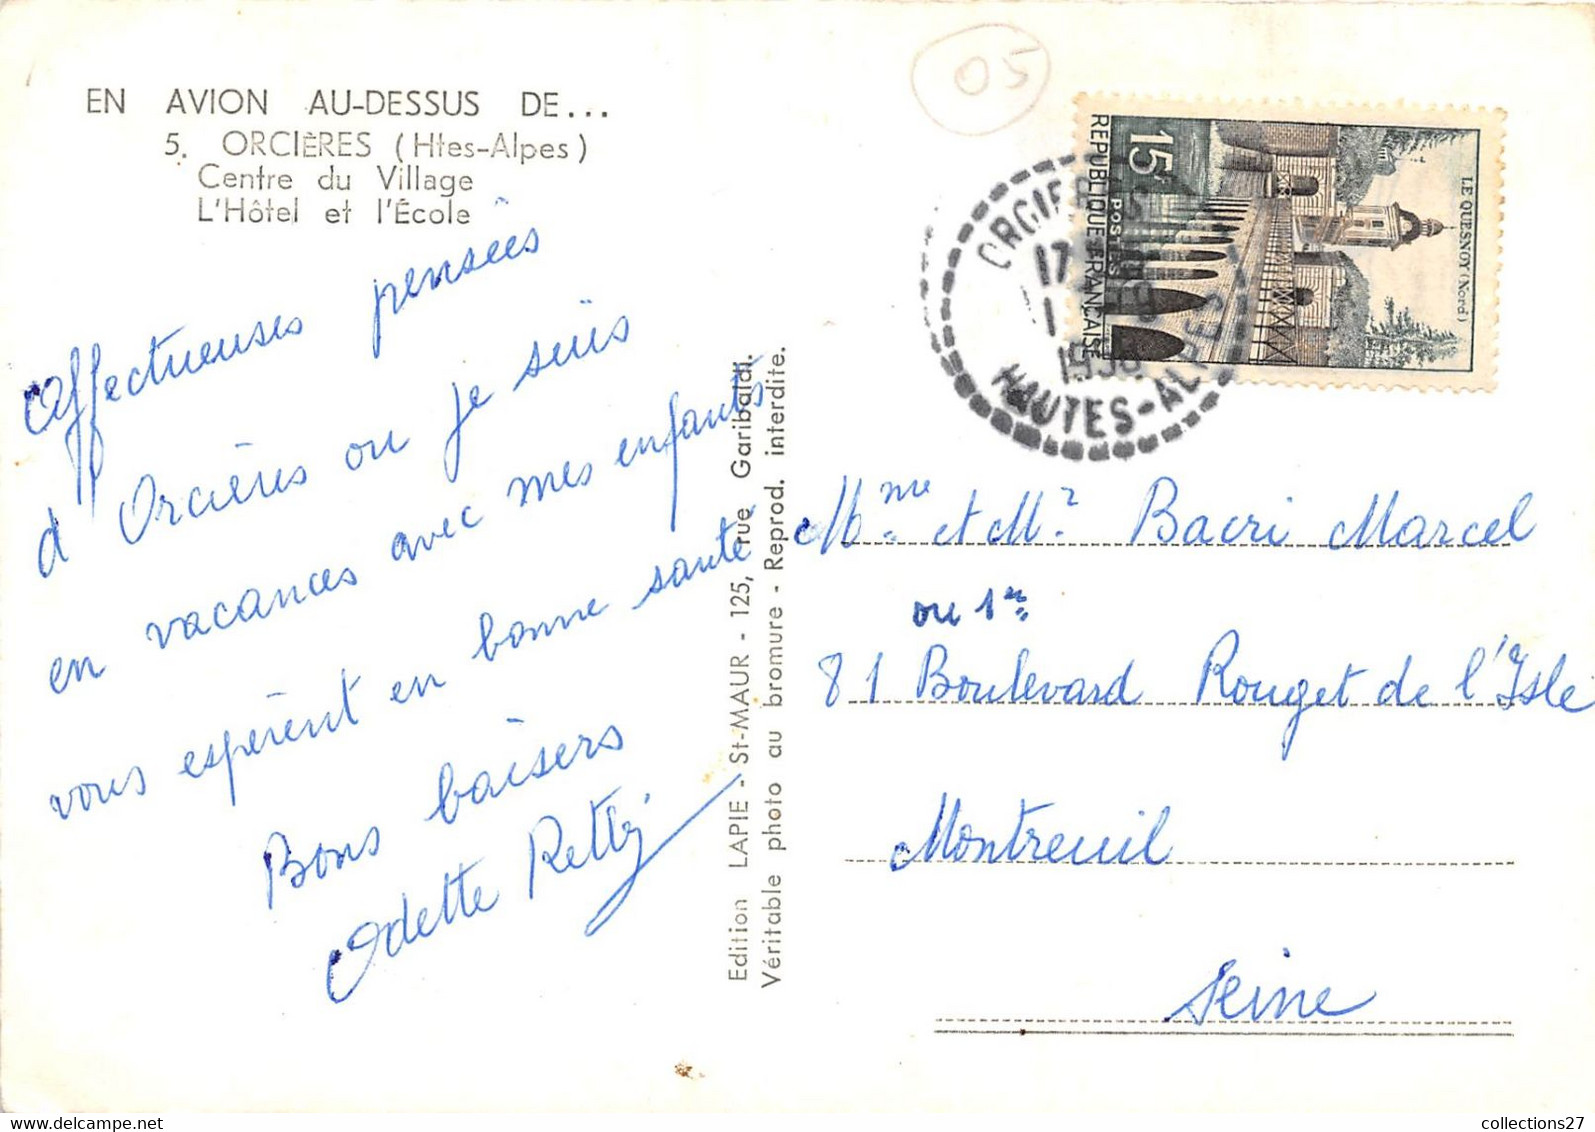 EN AVION AU-DESSUS DE...
5. ORCIÈRES (Htes-Alpes)
Centre du Village
L'Hôtel et l'École
Affectueuses pensées
d'Orcières ou je suis
en vacances avec mes enfants
vous espèrent en bonne santé
Bons baisers
Odette Retty
Edition LAPIE - St-MAUR - 125, rue Garibaldi.
Véritable photo au bromure - Reprod. interdite.
05
15F
POSTES
REPUBLIQUE FRANÇAISE
LE QUESNOY (Nord)
ORCIERES
17
HAUTES-ALPES
Mme et Mr Bacri Marcel
ou 1er
81 Boulevard Rouget de l'Isle
Montreuil
Seine
collections27